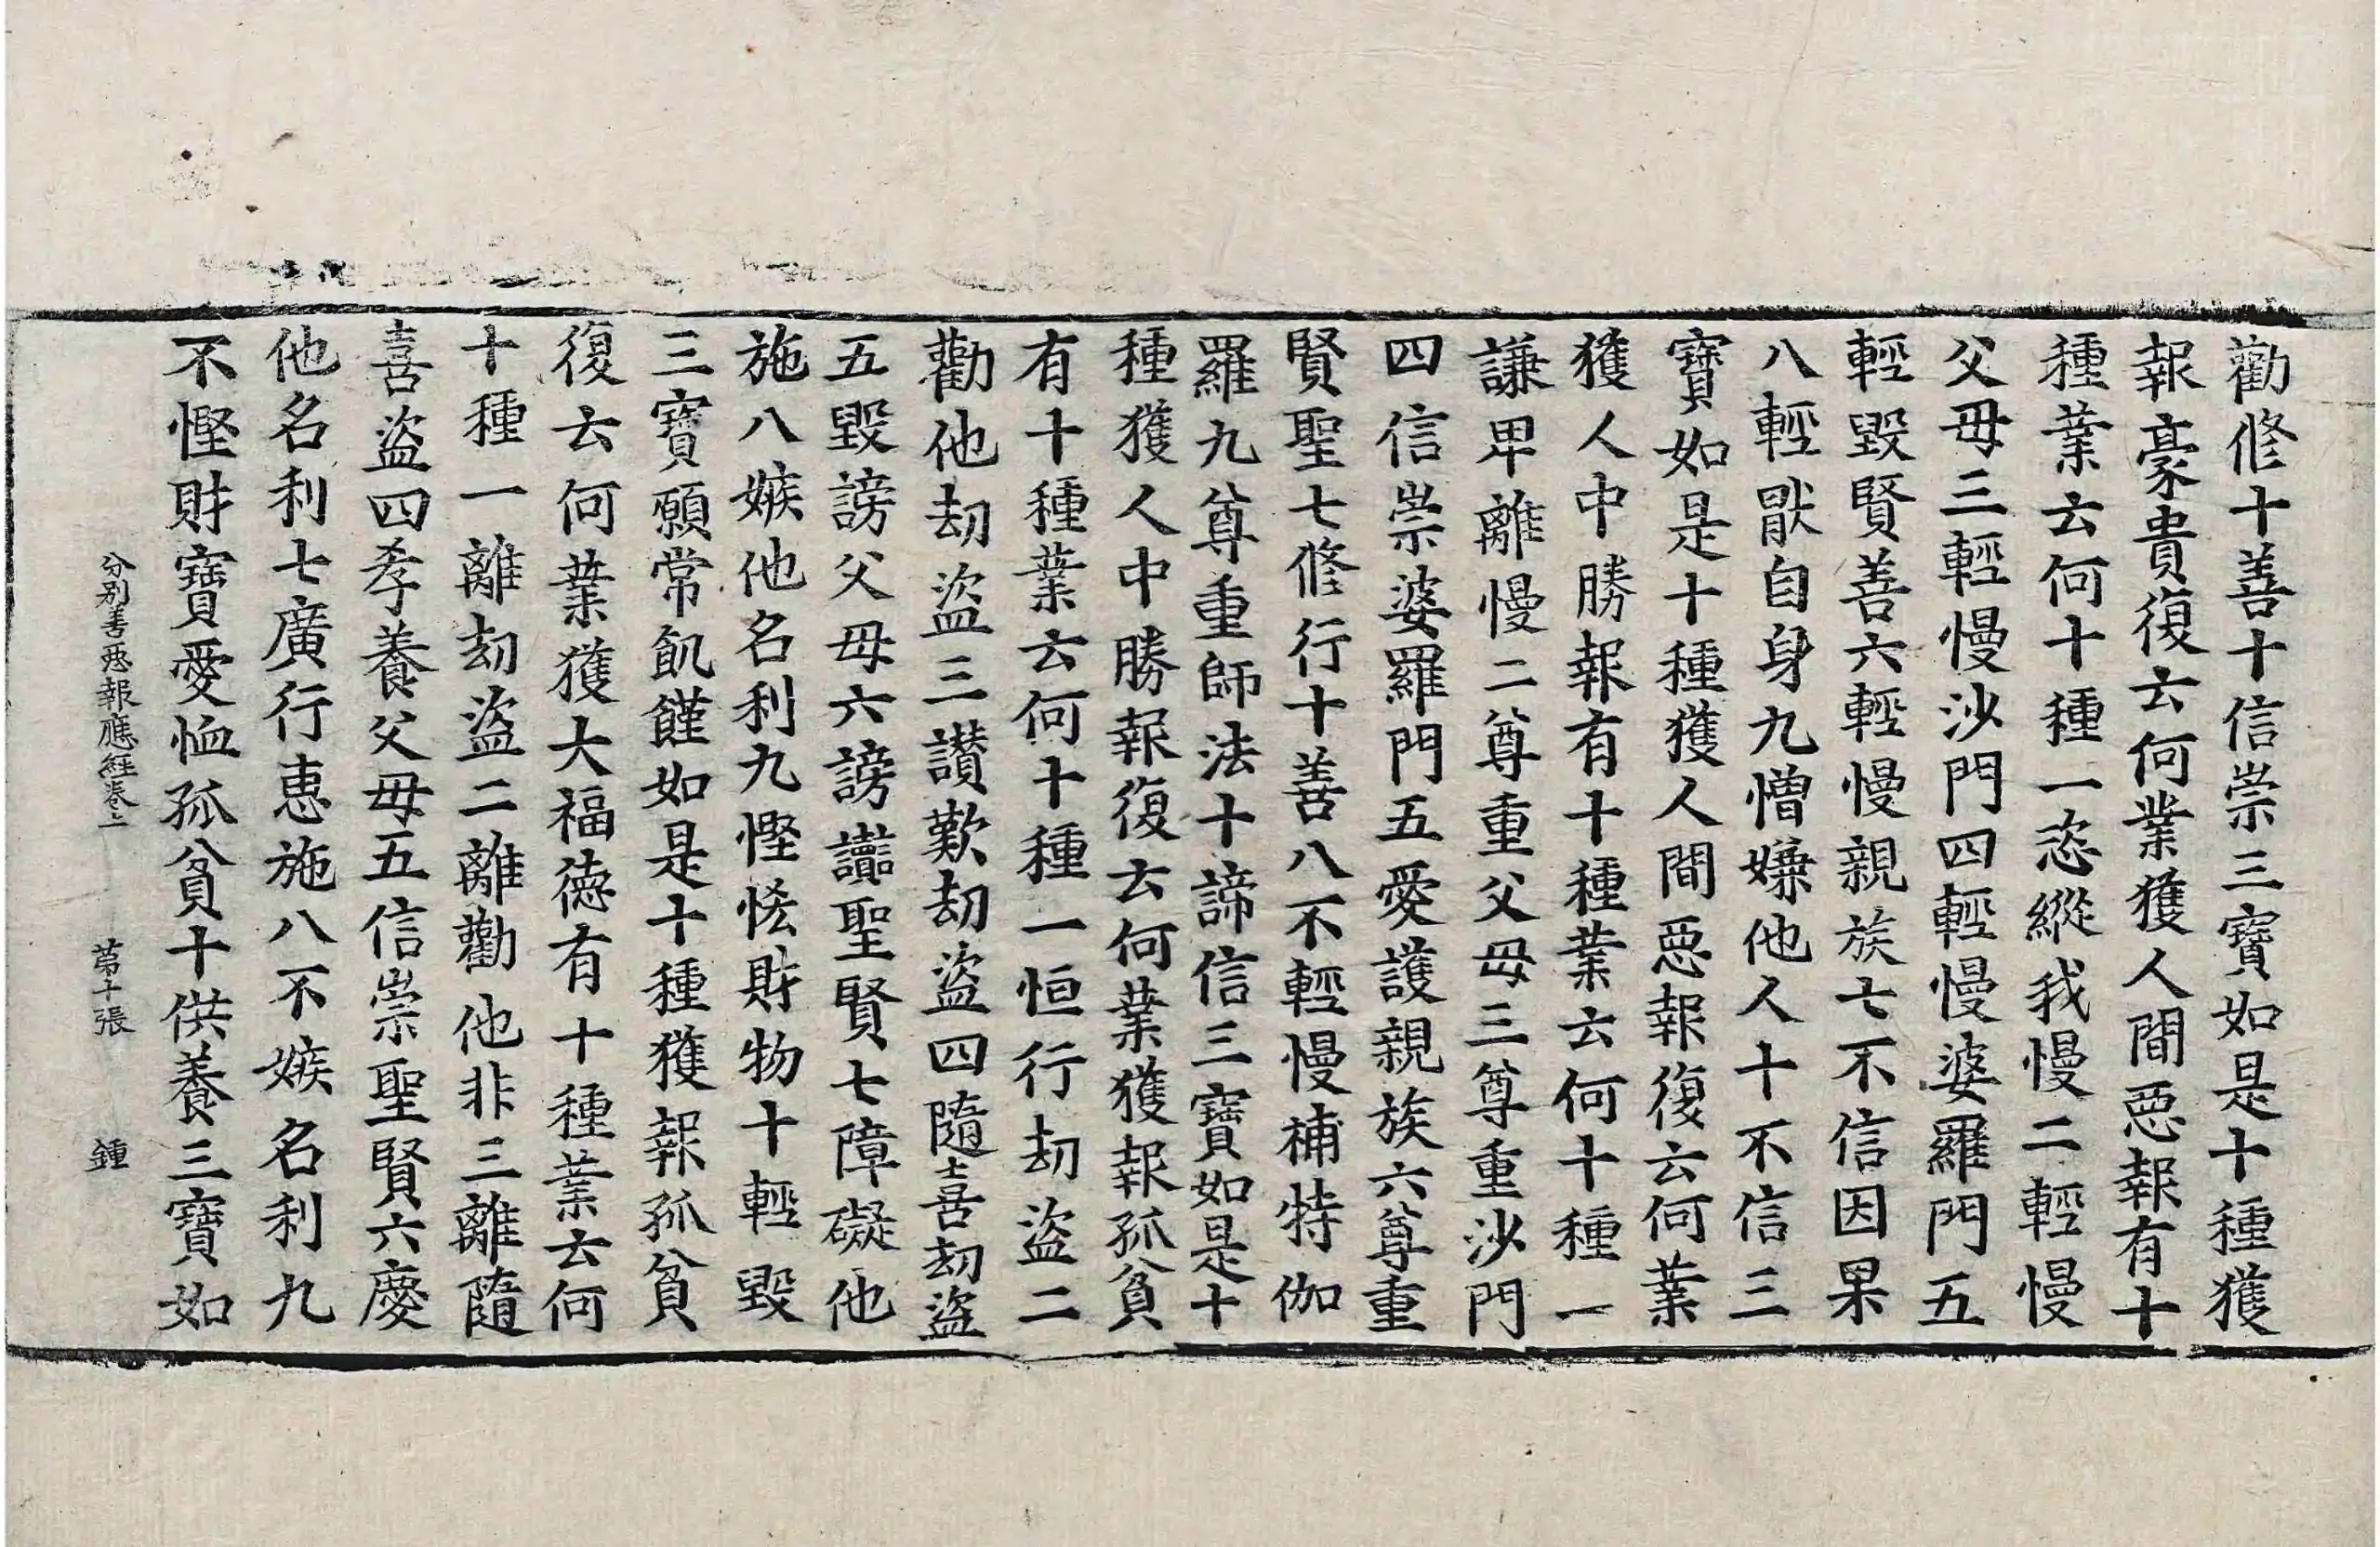 勸修十善十信崇三寶如是十種獲
報豪貴復云何業獲人間惡報有十
種業云何十種一恣縱我慢二輕慢
父母三輕慢沙門四輕慢婆羅門五
輕毀賢善六輕慢親族七不信因果
八輕猒自身九憎嫌他人十不信三
寶如是十種獲人間惡報復云何業
獲人中勝報有十種業云何十種一
謙卑離慢二尊重父母三尊重沙門
四信崇婆羅門五愛護親族六尊重
賢聖七修行十善八不輕慢補特伽
羅九尊重師法十諦信三寶如是十
種獲人中勝報復云何業獲報孤貧
有十種業云何十種一恒行劫盜二
勸他劫盜三讃歎劫盜四隨喜劫盜
五毀謗父母六謗讟聖賢七障礙他
施八嫉他名利九慳悋財物十輕毀
三寶願常飢饉如是十種獲報孤貧
復云何業獲大福德有十種業云何
十種一離劫盜二離勸他非三離隨
喜盜四孝養父母五信崇聖賢六慶
他名利七廣行惠施八不嫉名利九
不慳財寶愛恤孤貧十供養三寶如
分別善惡報應經卷上 第十張 鍾